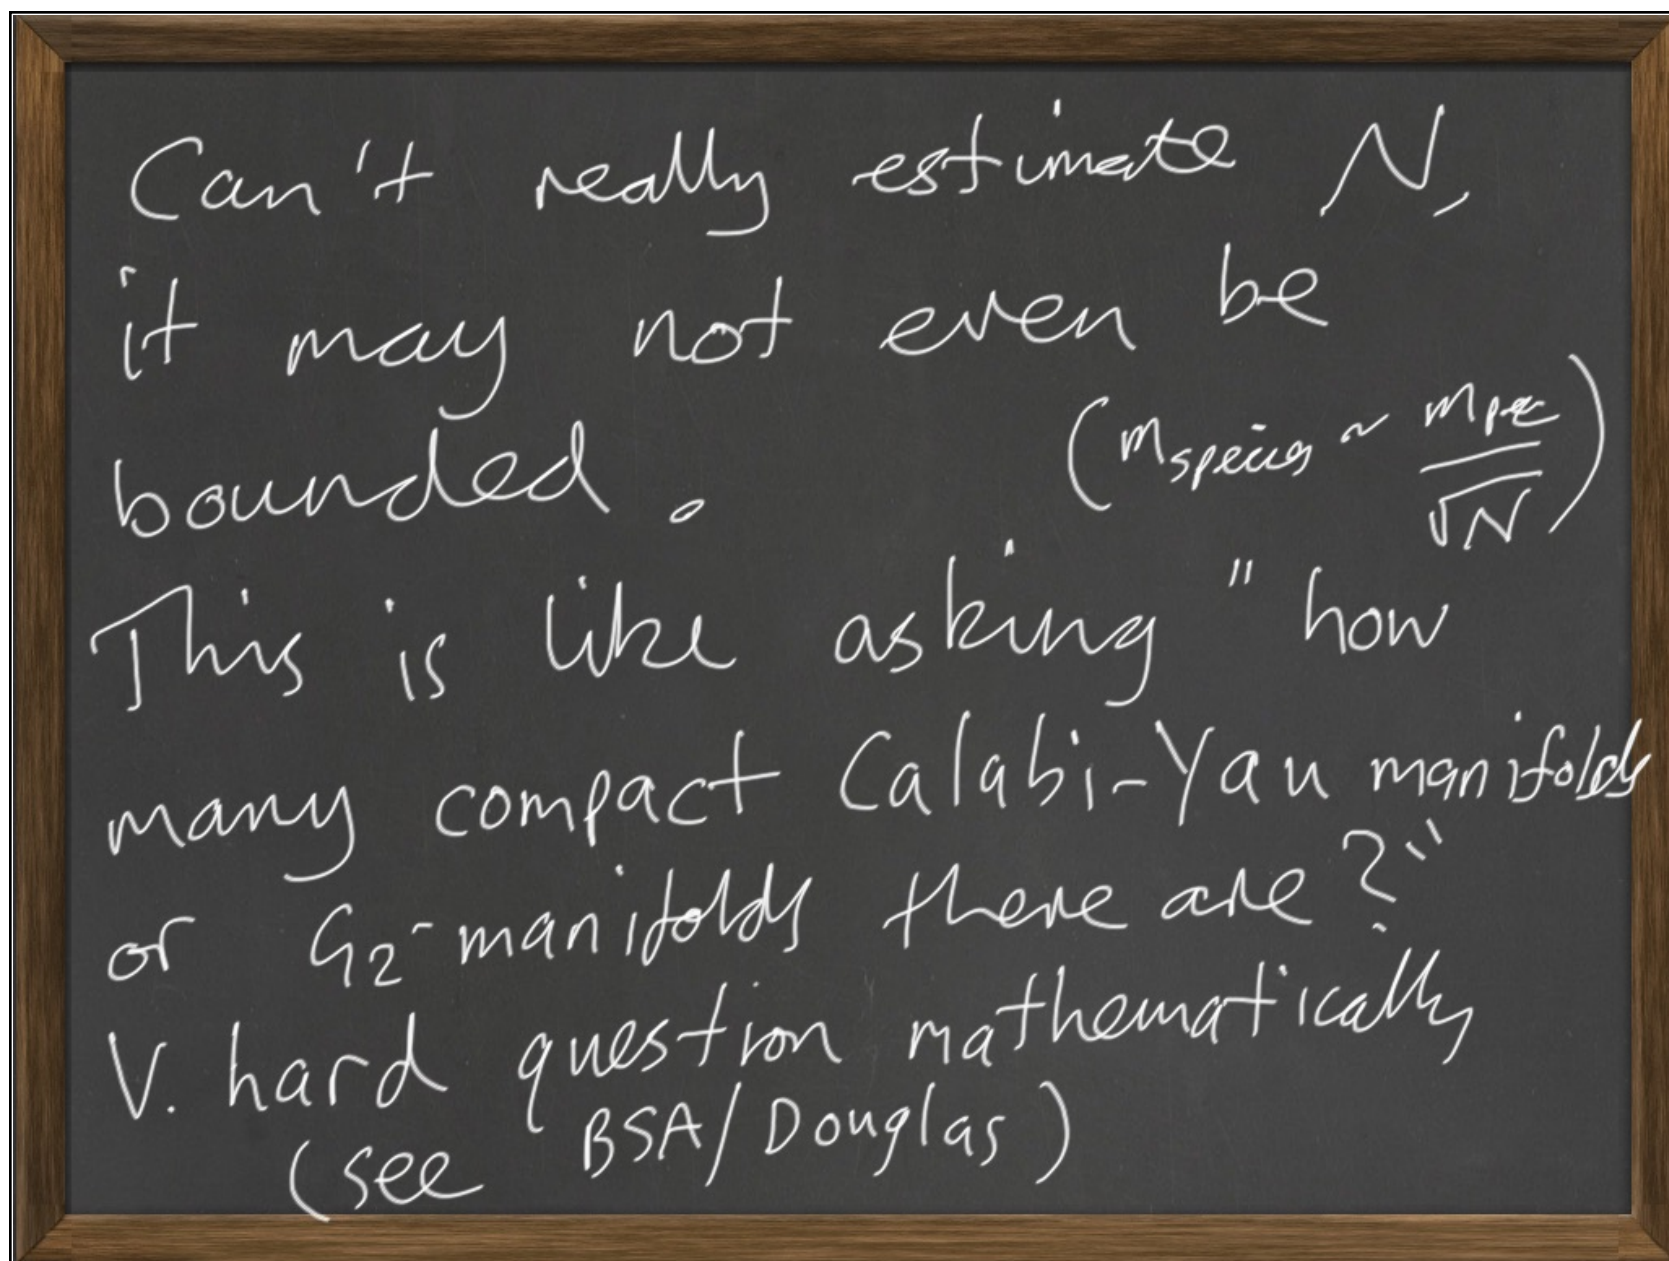 Can't really estimate N,
it may not even be
bounded. (m_species ~ m_pl / √N)
This is like asking "how
many compact Calabi-Yau manifolds
or G₂-manifolds there are?"
V. hard question mathematically
(see BSA/Douglas)